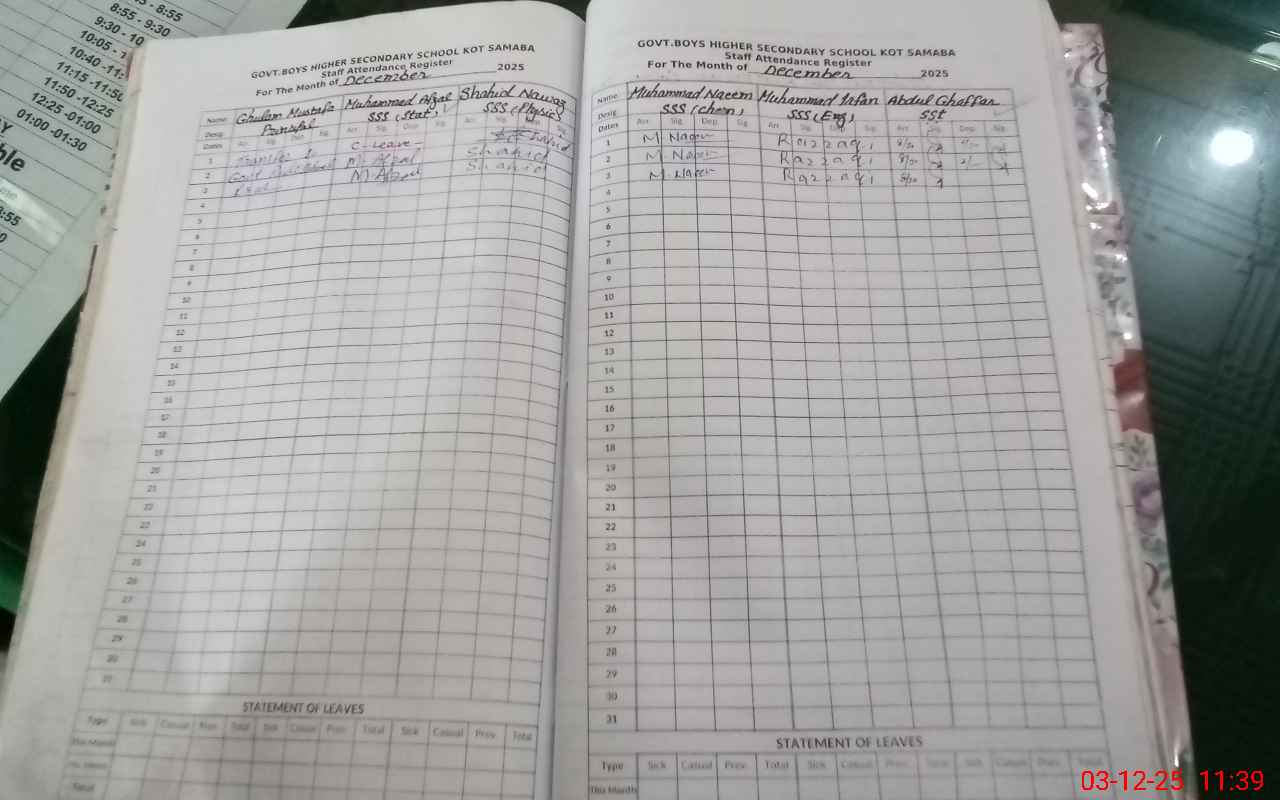 8:55
8:55 - 9:30
9:30 - 10
10:05 -
10:40 -11:
11:15 -11:50
11:50 -12:25
12:25 -01:00
01:00 -01:30
GOVT.BOYS HIGHER SECONDARY SCHOOL KOT SAMABA
Staff Attendance Register
For The Month of December 2025
Name Ghulam Mustafa Muhammad Afzal Shahid Nawaz
Desig. Principal SSS (Stat) SSS (Physic)
Dates Arr. Sig. Dep. Sig. Arr. Sig. Dep. Sig. Arr. Sig. Dep. Sig.
1 Transfer to C-Leave Shahid
2 Govt M. Afzal Shahid
3 M. Afzal Shahid
4
5
6
7
8
9
10
11
12
13
14
15
16
17
18
19
20
21
22
23
24
25
26
27
28
29
30
31
STATEMENT OF LEAVES
Type Sick Casual Prev. Total Sick Casual Prev. Total Sick Casual Prev. Total
This Month
Total
GOVT.BOYS HIGHER SECONDARY SCHOOL KOT SAMABA
Staff Attendance Register
For The Month of December 2025
Name Muhammad Naeem Muhammad Irfan Abdul Ghaffar
Desig. SSS (Chem) SSS (Eng) SSt
Dates Arr. Sig. Dep. Sig. Arr. Sig. Dep. Sig. Arr. Sig. Dep. Sig.
1 M. Naeem Razzaqi
2 M. Naeem Razzaqi
3 M. Naeem Razzaqi
4
5
6
7
8
9
10
11
12
13
14
15
16
17
18
19
20
21
22
23
24
25
26
27
28
29
30
31
STATEMENT OF LEAVES
Type Sick Casual Prev. Total Sick Casual Prev. Total Sick Casual Prev. Total
This Month
03-12-25 11:39